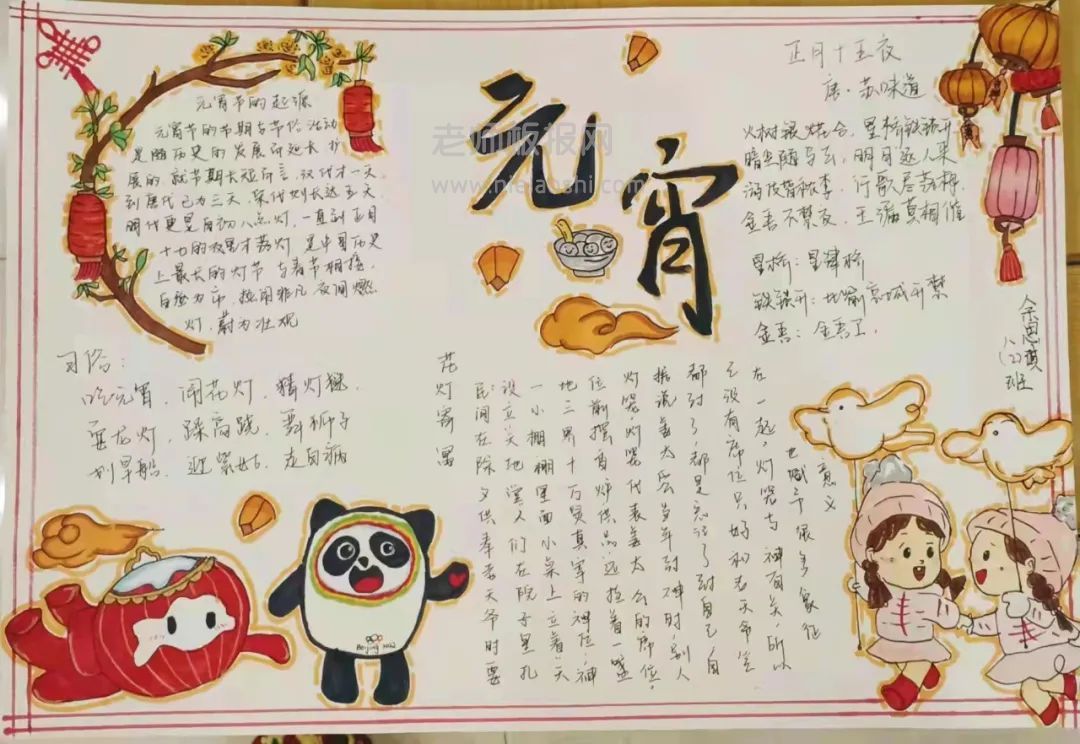 元宵
老师板报网
www.
元宵节的起源
元宵节的节期与节俗活动
是随历史的发展而延长扩
展的，就节期长短而言，汉代才一天，
到唐代已为三天，宋代则长达五天，
明代更是自初八点灯，一直到正月
十七的夜里才落灯 是中国历史
上最长的灯节 与春节相接，
白昼为市，热闹非凡夜间燃
灯，蔚为壮观
习俗：
吃元宵，闹花灯，猜灯谜，
耍龙灯，踩高跷，舞狮子
划旱船，迎紫姑，走百病
正月十五夜
唐·苏味道
火树银花合，星桥铁锁开
暗尘随马去，明月逐人来
游伎皆秾李，行歌尽落梅
金吾不禁夜，玉漏莫相催
星桥：星津桥
铁锁开：比喻京城开禁
金吾：金吾卫，
八(2)班
意义
也赋予很多象征
左一起，灯笼与神有关，所以
之没有席位只好和老天爷坐
都到了，都是忘记了到自己，自
据说姜太公当年封神时，别人
灯笼灯笼代表姜太公的席位，
位前摆香炉供品，还挂着一盏
地三界十万真军的神位，神
一小棚棚里面小桌上立着天
设立天地 人们在院子里扎
民间在除夕供奉老天爷时要
花灯寓
Beijing 2022